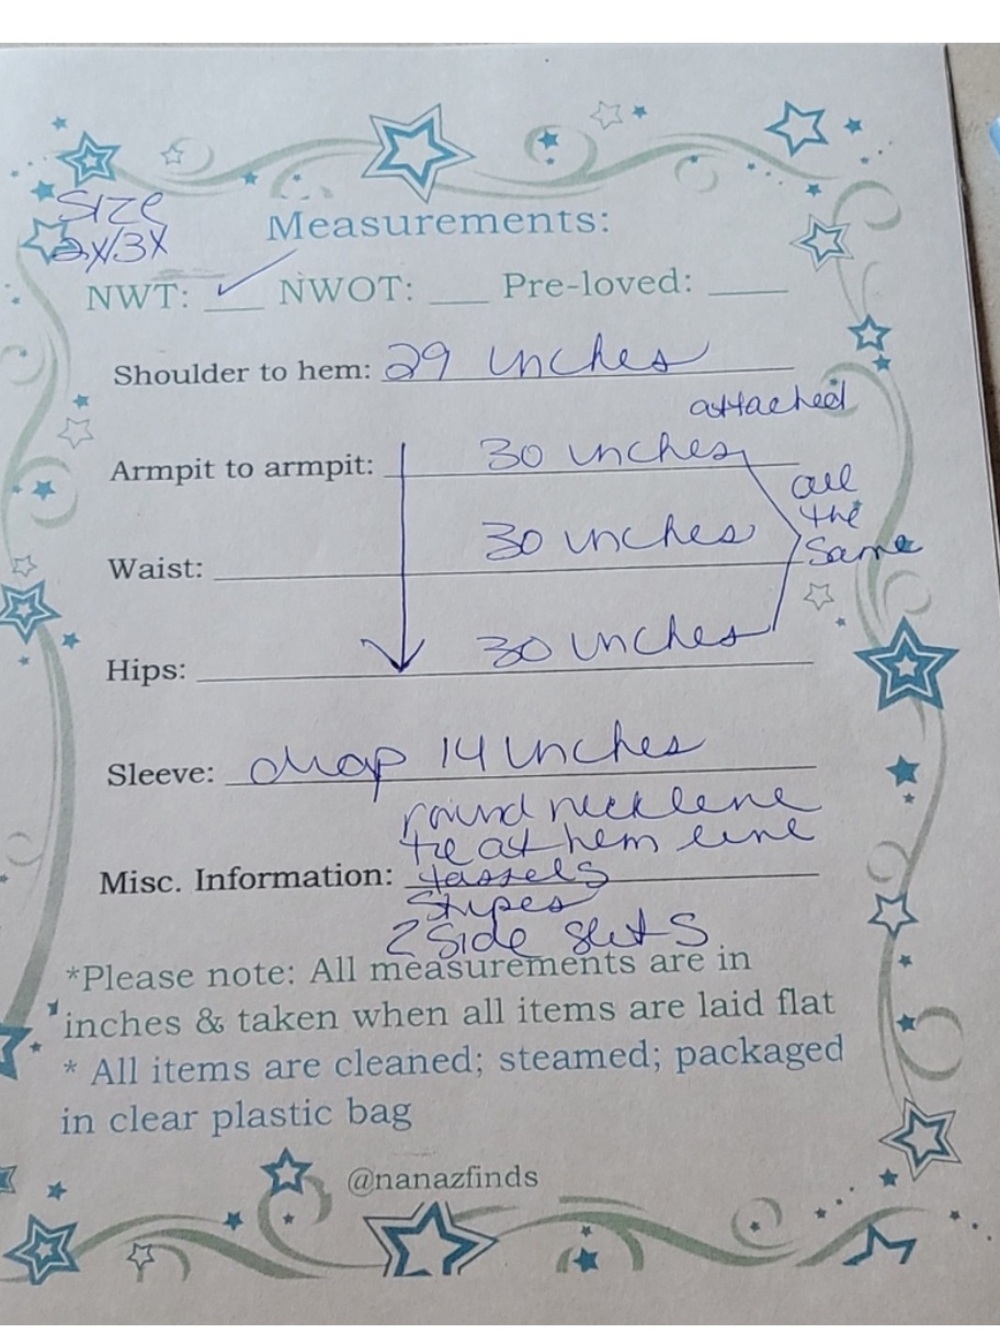 Size
2X/3X
Measurements:
NWT: ✓ NWOT: ___ Pre-loved: ___
Shoulder to hem: 29 inches
attached
Armpit to armpit: 30 inches
all
the
same
Waist: 30 inches
Hips: 30 inches
Sleeve: drap 14 inches
round neckline
tie at hem line
Misc. Information: tassels
Stripes
2 Side slits
*Please note: All measurements are in
inches & taken when all items are laid flat
* All items are cleaned; steamed; packaged
in clear plastic bag
@nanazfinds